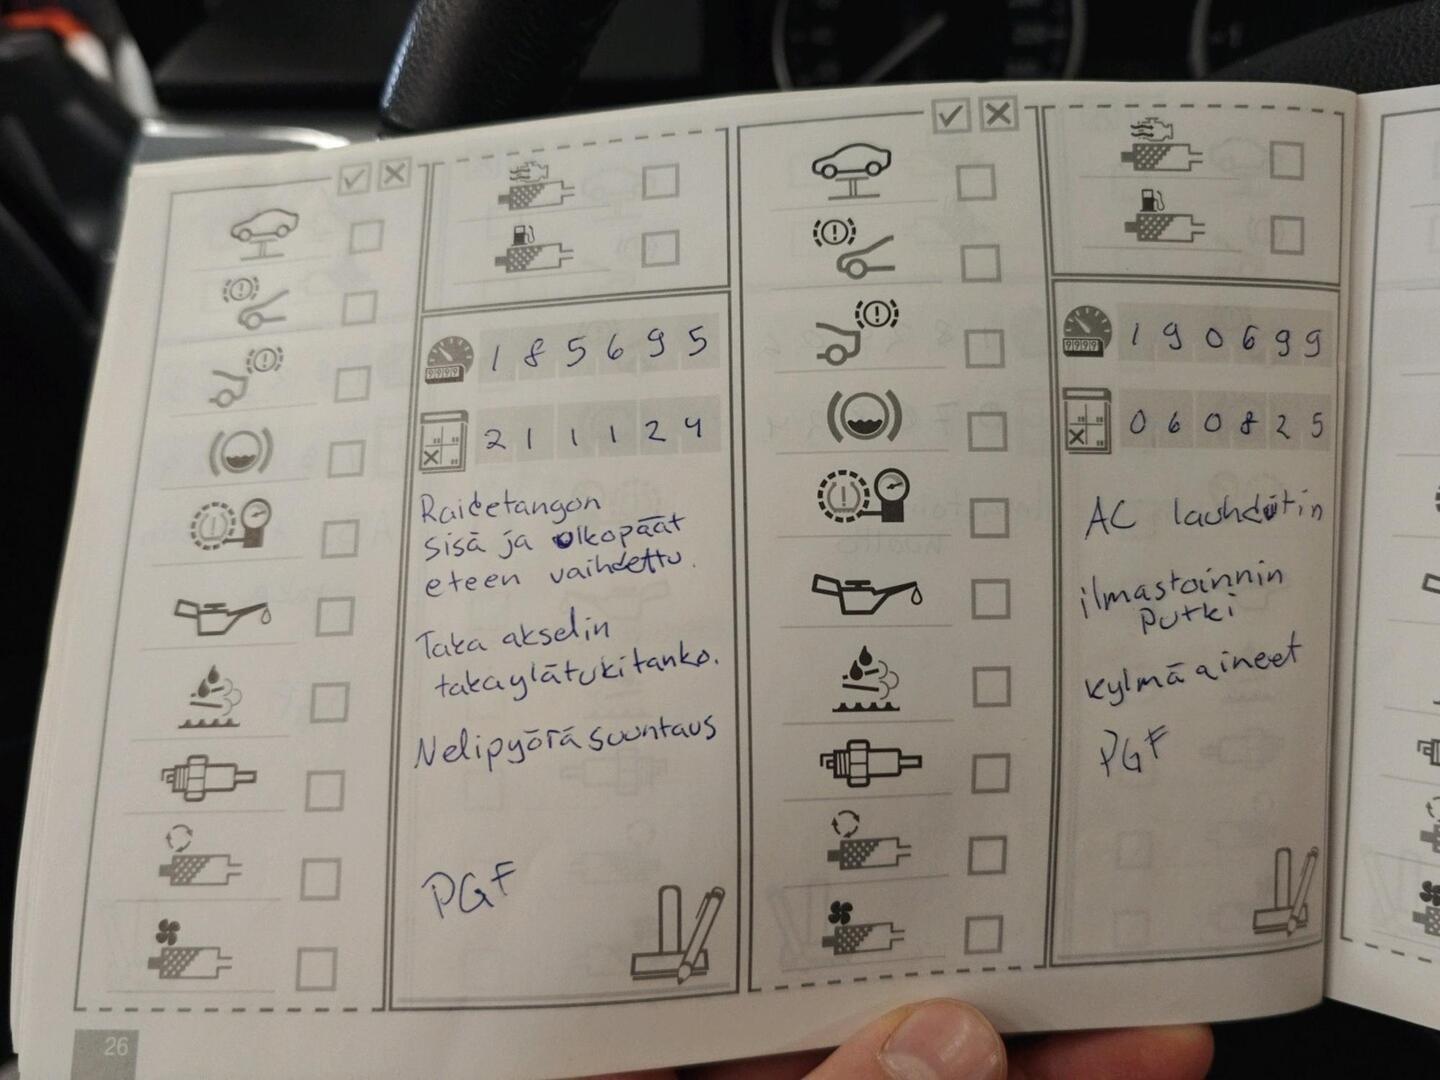 185695
211124
Raidetangon
sisä ja ulkopäät
eteen vaihdettu.
Taka akselin
takaylätukitanko.
Nelipyöräsuuntaus
PGF
190699
060825
AC lauhdutin
ilmastoinnin
putki
kylmäaineet
PGF
26